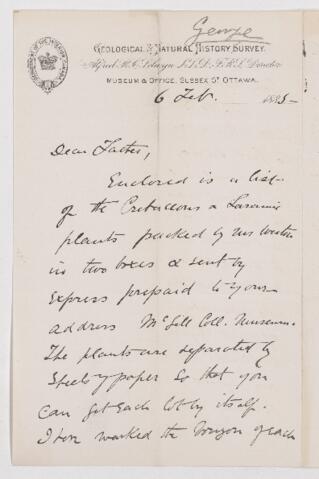 George
GEOLOGICAL & NATURAL HISTORY SURVEY.
Alfred R. C. Selwyn L.L.D. F.R.S. Director
MUSEUM & OFFICE, SUSSEX ST OTTAWA.
6 Feb. 1885
Dear Father,
Enclosed is a list
of the Cretaceous & Laramie
plants packed by Mr Weston
in two boxes & sent by
Express prepaid to your
address McGill Coll. Museum.
The plants are separated by
Sheets of paper so that you
can get each lot by itself.
I have marked the horizon of each